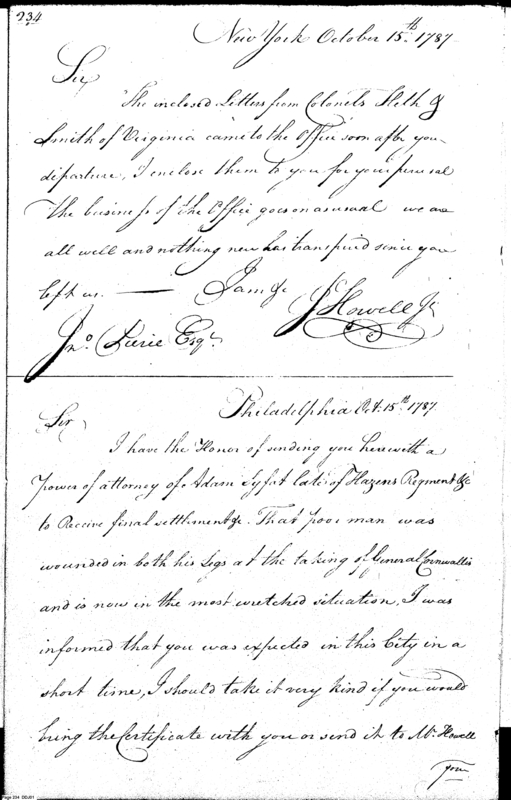 234
New York October 15th 1787
Sir
The inclosed Letters from Colonels Heth &
Smith of Virginia came to the Office soon after you
departure, I enclose them to you for your perusal
The business of the Office goes on as usual we are
all well and nothing new has transpired since you
left us. — I am &c Jo Howell Jr
Jno. Pierce Esqr.
Philadelphia Oct. 15th 1787
Sir
I have the Honor of sending you herewith a
Power of attorney of Adam Syfrit late of Hazens Regment &c
to Receive final settlement &c. That poor man was
wounded in both his Legs at the taking of General Cornwallis
and is now in the most wretched situation, I was
informed that you was expected in this City in a
short time, I should take it very kind if you would
bring the Certificate with you or send it to Mr Howell
your
Page 234